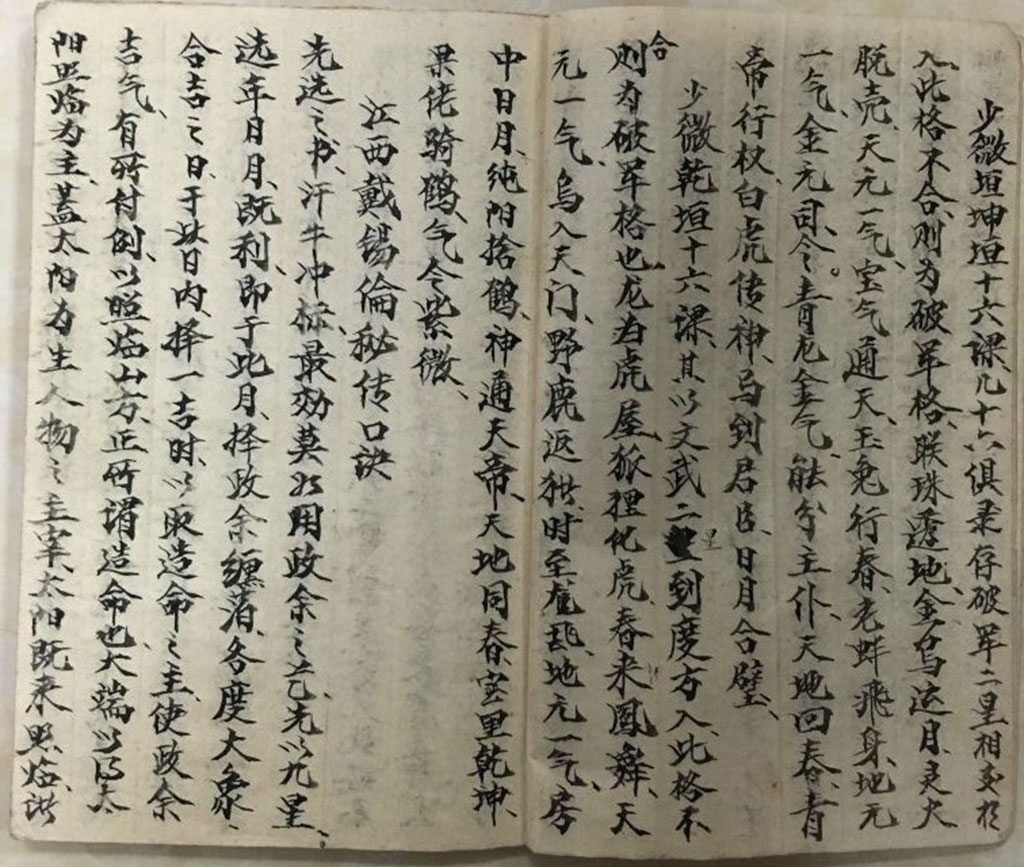 少微垣坤垣十六课、凡十六俱秉存破军二星相交于
入此格不合则为破军格、联珠透地、金乌运月、灵犬
脱壳、天元一气、宝气通天、玉兔行春、老蚌飛身、地元
一气、金元司令。青龙金气、能分主仆、天地回春、青
帝行权、白虎传神、马到君臣、日月合璧、
少微乾垣十六课、其以文武二星到度方入此格不
合则为破军格也、龙为虎屋、狐狸化虎、春来鳳舞、天
元一气、乌入天门、野鹿返、时至、地元一气、房
中日月、纯阳捨鹤、神通天帝、天地同春、室里乾坤、
果佬骑鹤、气令紫微、
江西戴锡倫秘传口訣
先选之书、汗牛冲标、最効莫如用政余之艺、先以九星、
选年日月、既利、即于此月、择政余缠落各度大象、
合吉之日、于此日内、择一吉时、以取造命之主、使政余
吉气、有所付倒、以照临山方、正所谓造命也、大端以以太
阳照临为主、蓋太阳为生人物之主宰、太阳既来照临、諸